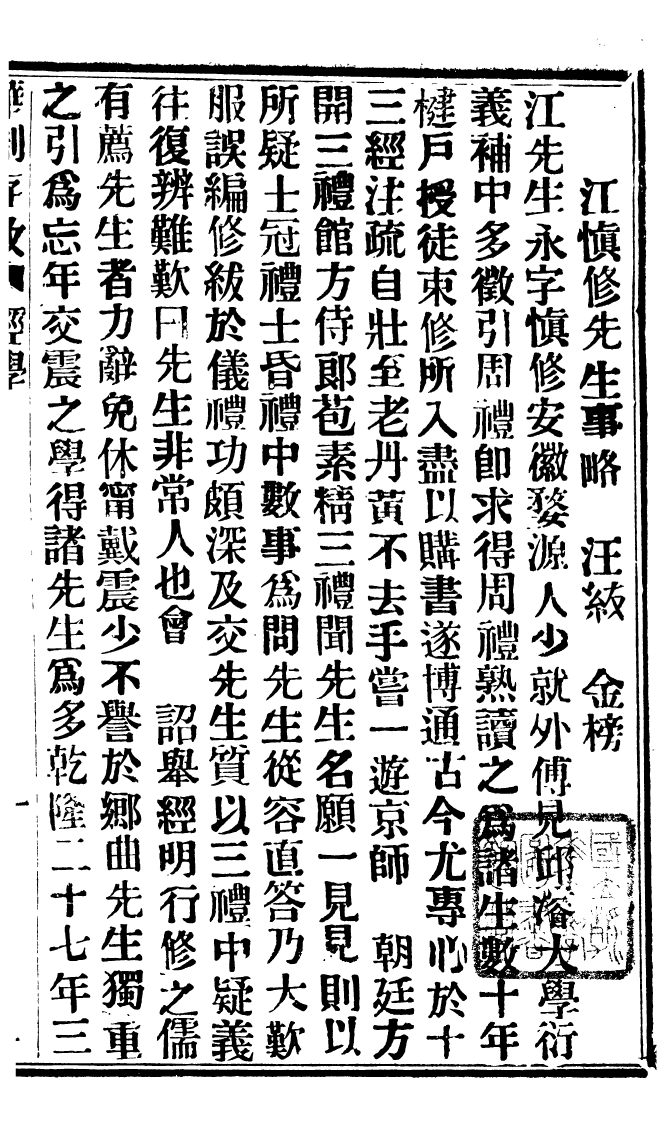 江慎修先生事略　汪紱　金榜
江先生永字慎修安徽婺源人少就外傅見邱濬大學衍
義補中多徵引周禮卽求得周禮熟讀之爲諸生數十年
楗戸授徒束修所入盡以購書遂博通古今尤專心於十
三經注疏自壯至老丹黃不去手嘗一遊京師　朝廷方
開三禮館方侍郎苞素精三禮聞先生名願一見見則以
所疑士冠禮士昏禮中數事爲問先生從容直答乃大歎
服誤編修紱於儀禮功頗深及交先生質以三禮中疑義
往復辨難歎曰先生非常人也會　詔舉經明行修之儒
有薦先生者力辭免休甯戴震少不譽於鄉曲先生獨重
之引爲忘年交震之學得諸先生爲多乾隆二十七年三
經學
一